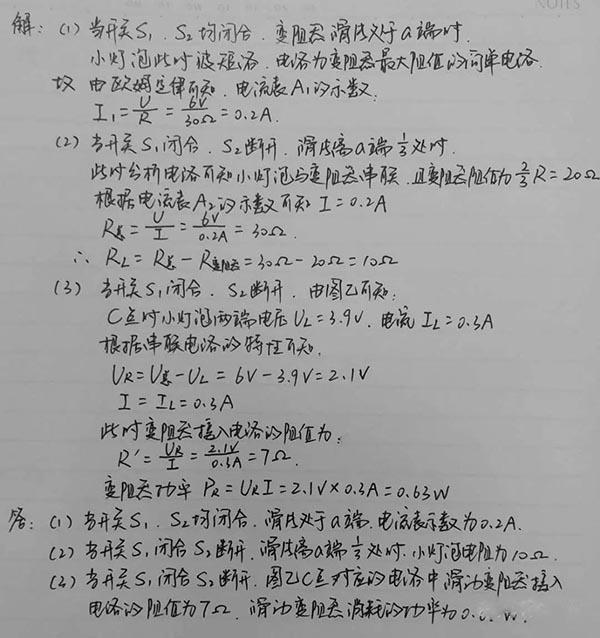 解：(1) 当开关S₁、S₂均闭合，变阻器滑片处于a端时，
小灯泡此时被短路，电路为变阻器最大阻值的简单电路.
故 由欧姆定律可知，电流表A₁的示数：
I₁=U/R=6V/30Ω=0.2A.
(2) 当开关S₁闭合，S₂断开，滑片离a端1/3处时.
此时分析电路可知小灯泡与变阻器串联，且变阻器阻值为2/3R=20Ω
根据电流表A₂的示数可知 I=0.2A
R总=U/I=6V/0.2A=30Ω.
∴ RL=R总-R变阻器=30Ω-20Ω=10Ω
(3) 当开关S₁闭合，S₂断开，由图乙可知：
C点时小灯泡两端电压UL=3.9V，电流IL=0.3A
根据串联电路的特性可知，
UR=U总-UL=6V-3.9V=2.1V
I=IL=0.3A
此时变阻器接入电路的阻值为：
R'=UR/I=2.1V/0.3A=7Ω.
变阻器功率 PR=URI=2.1V×0.3A=0.63W
答：(1) 当开关S₁、S₂均闭合，滑片处于a端，电流表示数为0.2A.
(2) 当开关S₁闭合S₂断开，滑片离a端1/3处时，小灯泡电阻为10Ω.
(3) 当开关S₁闭合S₂断开，图乙C点对应的电路中滑动变阻器接入
电路的阻值为7Ω，滑动变阻器消耗的功率为